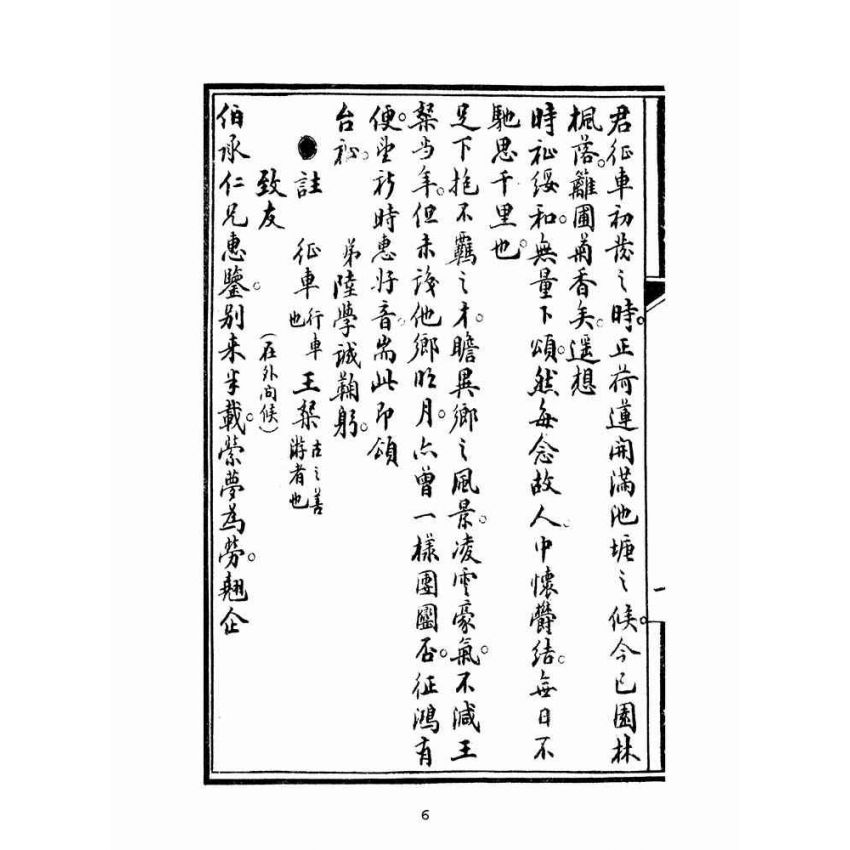 君征車初發之時。正荷蓮開滿池塘之候。今已園林
楓落。籬圃菊香矣。遥想
時祉綏和。無量下頌。然每念故人。中懷欝結。每日不
馳思千里也。
足下抱不羈之才。瞻異鄉之風景。凌雲豪氣。不減王
粲當年。但未識他鄉明月。亦曾一樣團圞否。征鴻有
便。望祈時惠好音。耑此即頌
台祉。　弟陸學誠鞠躬。
●註　征車行車也　王粲古之善游者也
致友（在外問候）
伯承仁兄惠鑒。别来半載。縈夢為勞。翹企
一
6